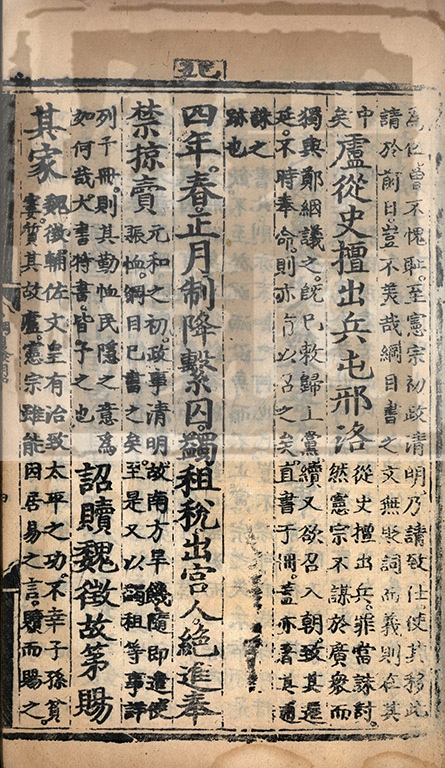 為仕曾不愧恥。至憲宗初政清明,乃請致仕。使其移此
請於前日,豈不美哉。綱目書之,文無貶詞,而義則在其
中
矣
盧從史擅出兵屯邢洛
從史擅出兵,罪當誅討。
然憲宗不謀於廣衆,而
獨與鄭絪議之。既已敕歸上黨,續又欲召入朝。致其遷
延。不時奉命,則亦有以召之矣。直書于冊。蓋亦著其
誅之
跡也
四年。春。正月。制降繫囚。蠲租稅。出宮人。絕進奉
禁掠賣
元和之初。政事清明。故南方旱饑。隨即遣使
賑恤。綱目已書之矣。至是又以蠲租等事詳
列于冊。則其勤恤民隱之意為
如何哉。大書特書。皆予之也
詔贖魏徵故第賜
其家
魏徵輔佐文皇有治致太平之功。不幸子孫貧
窶。質其故廬。憲宗雖能因居易之言。贖而賜之